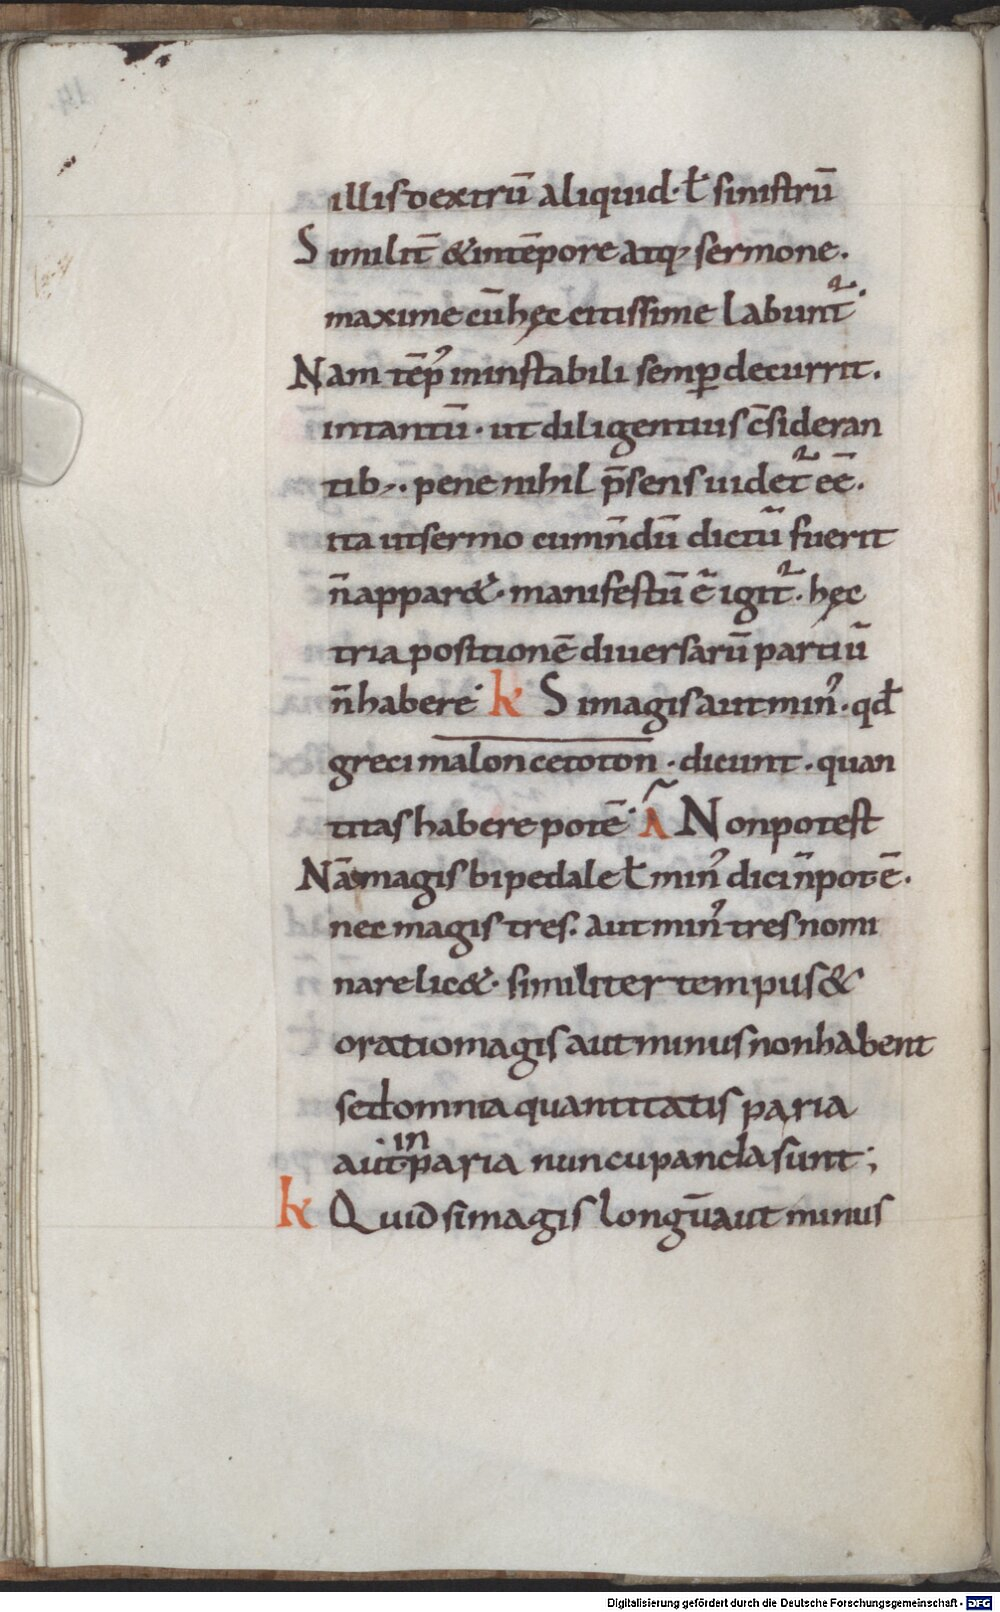 illis dextrū aliquid · ł sinistrū
Similiť & in tēpore atq; sermone .
maxime cū hęc citissime labunt᷑ .
Nam tēp' in instabili semꝑ decurrit .
in tantū · ut diligentius c̄sideran
tib; . pene nihil p̄sens uidet᷑ eē .
ita ut sermo cum n̄dū dictū fuerit
n̄ appar& · manifestū ē igit᷑ . hęc
tria positionē diuersarū partiū
n̄ habere · K Si magis aut min' . qđ
greci malon cetoton · dicunt . quan
titas habere potē · A Non potest
Nā magis bipedale ł min' dici n̄ potē .
nec magis tres . aut min' tres nomi
nare lic& · similiter tempus &
oratio magis aut minus non habent
sed omnia quantitatis paria
aut inparia nuncupanda sunt ;
K Quid si magis longū aut minus
14
Digitalisierung gefördert durch die Deutsche Forschungsgemeinschaft - DFG